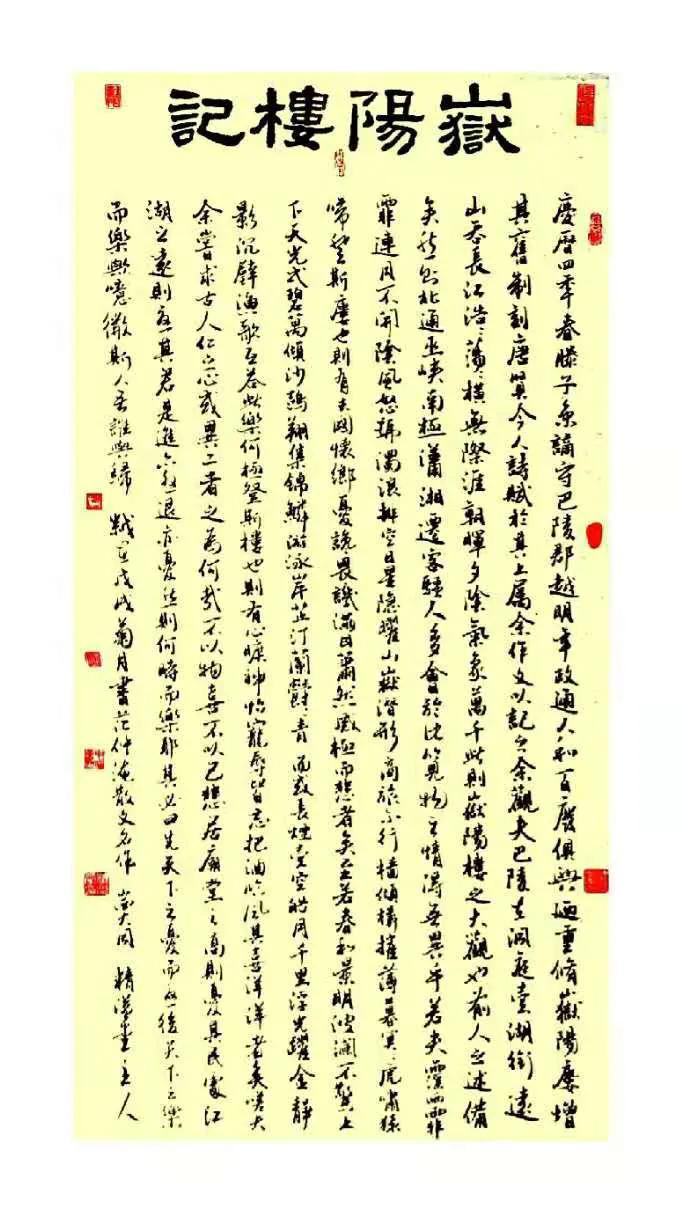 嶽陽樓記
慶曆四年春滕子京謫守巴陵郡越明年政通人和百廢俱興迺重脩嶽陽樓增
其舊制刻唐賢今人詩賦於其上屬余作文以記之余觀夫巴陵在洞庭壹湖銜遠
山吞長江浩浩蕩蕩橫無際涯朝暉夕陰氣象萬千此則嶽陽樓之大觀也前人之述備
矣然則北通巫峽南極瀟湘遷客騷人多會於此覽物之情得無異乎若夫霪雨霏
霏連月不開陰風怒號濁浪排空日星隱耀山嶽潛形商旅不行檣傾楫摧薄暮冥冥虎嘯猿
啼登斯樓也則有去國懷鄉憂讒畏譏滿目蕭然感極而悲者矣至若春和景明波瀾不驚上
下天光弌碧萬傾沙鷗翔集錦鱗游泳岸芷汀蘭鬱鬱青而或長煙壹空皓月千里浮光躍金靜
影沉璧漁歌互答此樂何極登斯樓也則有心曠神怡寵辱皆忘把酒臨風其喜洋洋者矣嗟夫
余嘗求古人仁之心或異二者之為何哉不以物喜不以己悲居廟堂之高則憂其民處江
湖之遠則憂其君是進亦憂退亦憂然則何時而樂耶其必曰先天下之憂而憂後天下之樂
而樂與噫微斯人吾誰與歸 戊戌菊月書范仲淹散文名作 主人